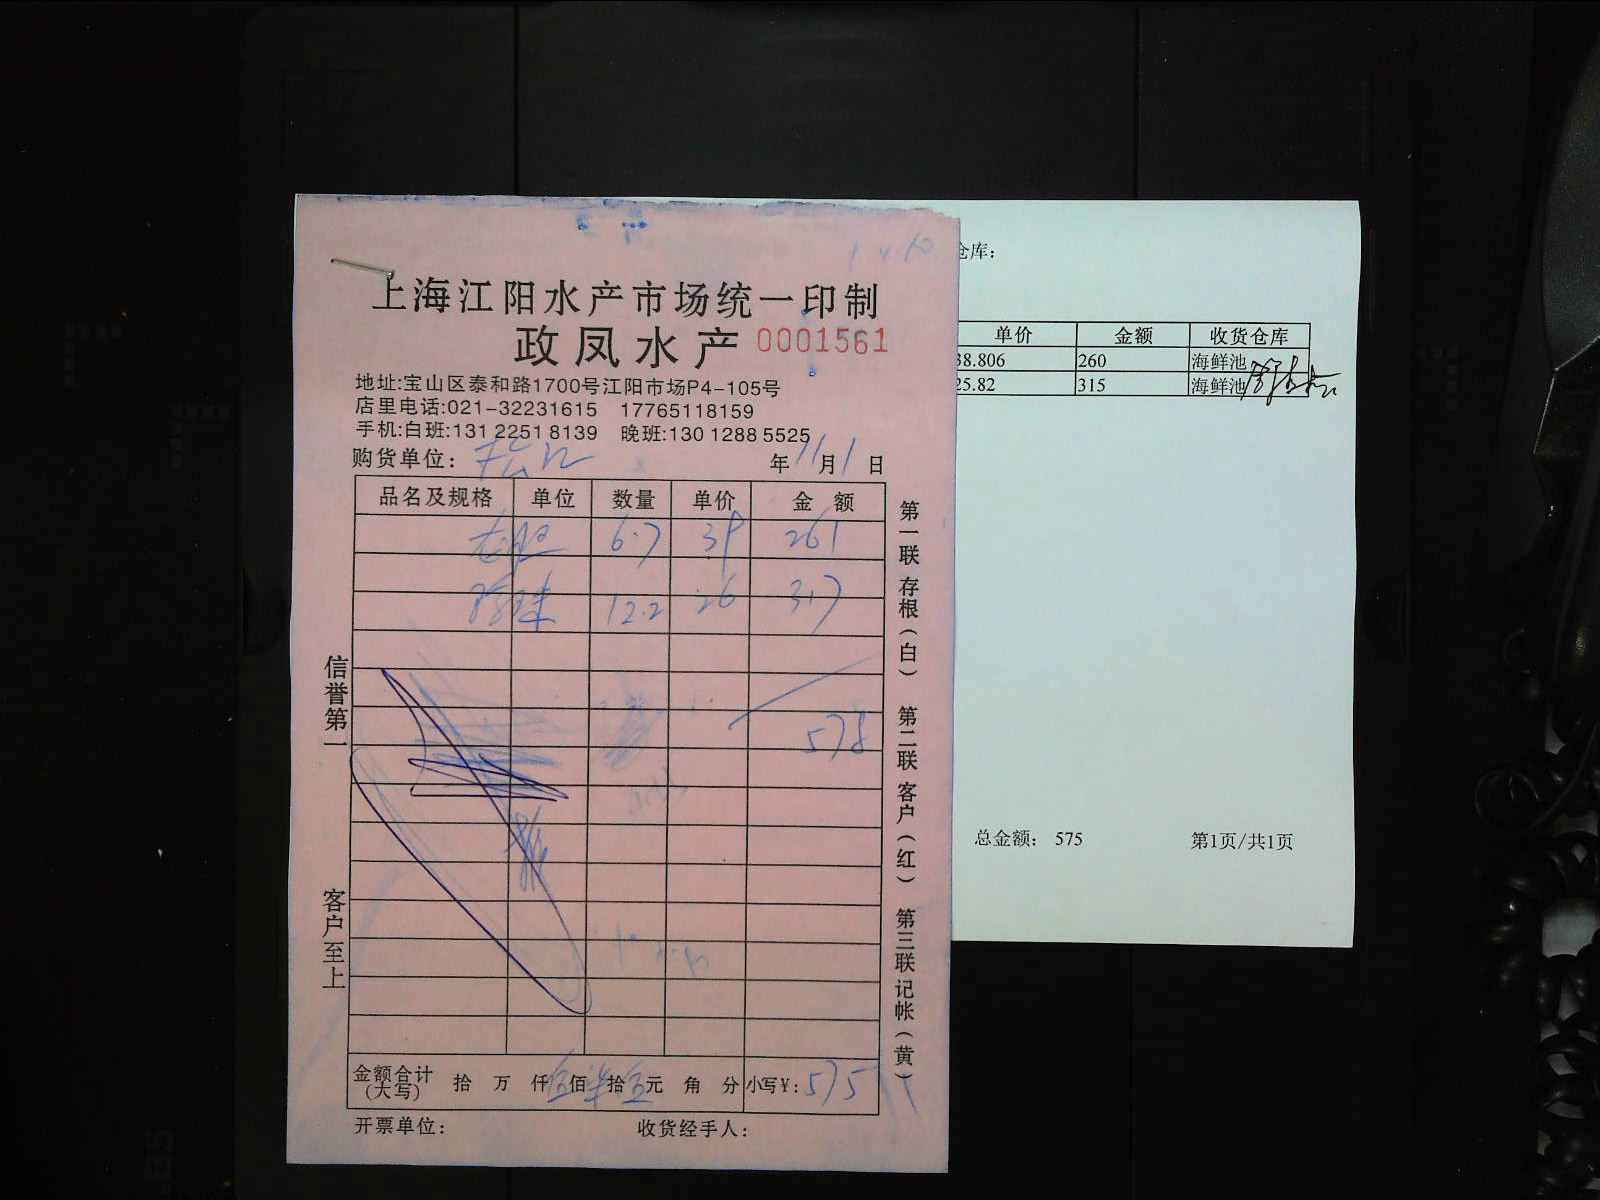 上海江阳水产市场统一印制
政凤水产 0001561
地址:宝山区泰和路1700号江阳市场P4-105号
店里电话:021-32231615 17765118159
手机:白班:131 2251 8139 晚班:130 1288 5525
购货单位: 年 11 月 1 日
品名及规格 单位 数量 单价 金 额
6.7 39 261
珍珠 12.2 26 317
578
金额合计(大写) 拾 万 仟 伍 佰 柒 拾 伍 元 角 分 小写¥: 575
开票单位: 收货经手人:
信誉第一 客户至上
第一联 存根(白) 第二联 客户(红) 第三联 记帐(黄)
仓库:
单价 金额 收货仓库
38.806 260 海鲜池
25.82 315 海鲜池
总金额: 575 第1页/共1页